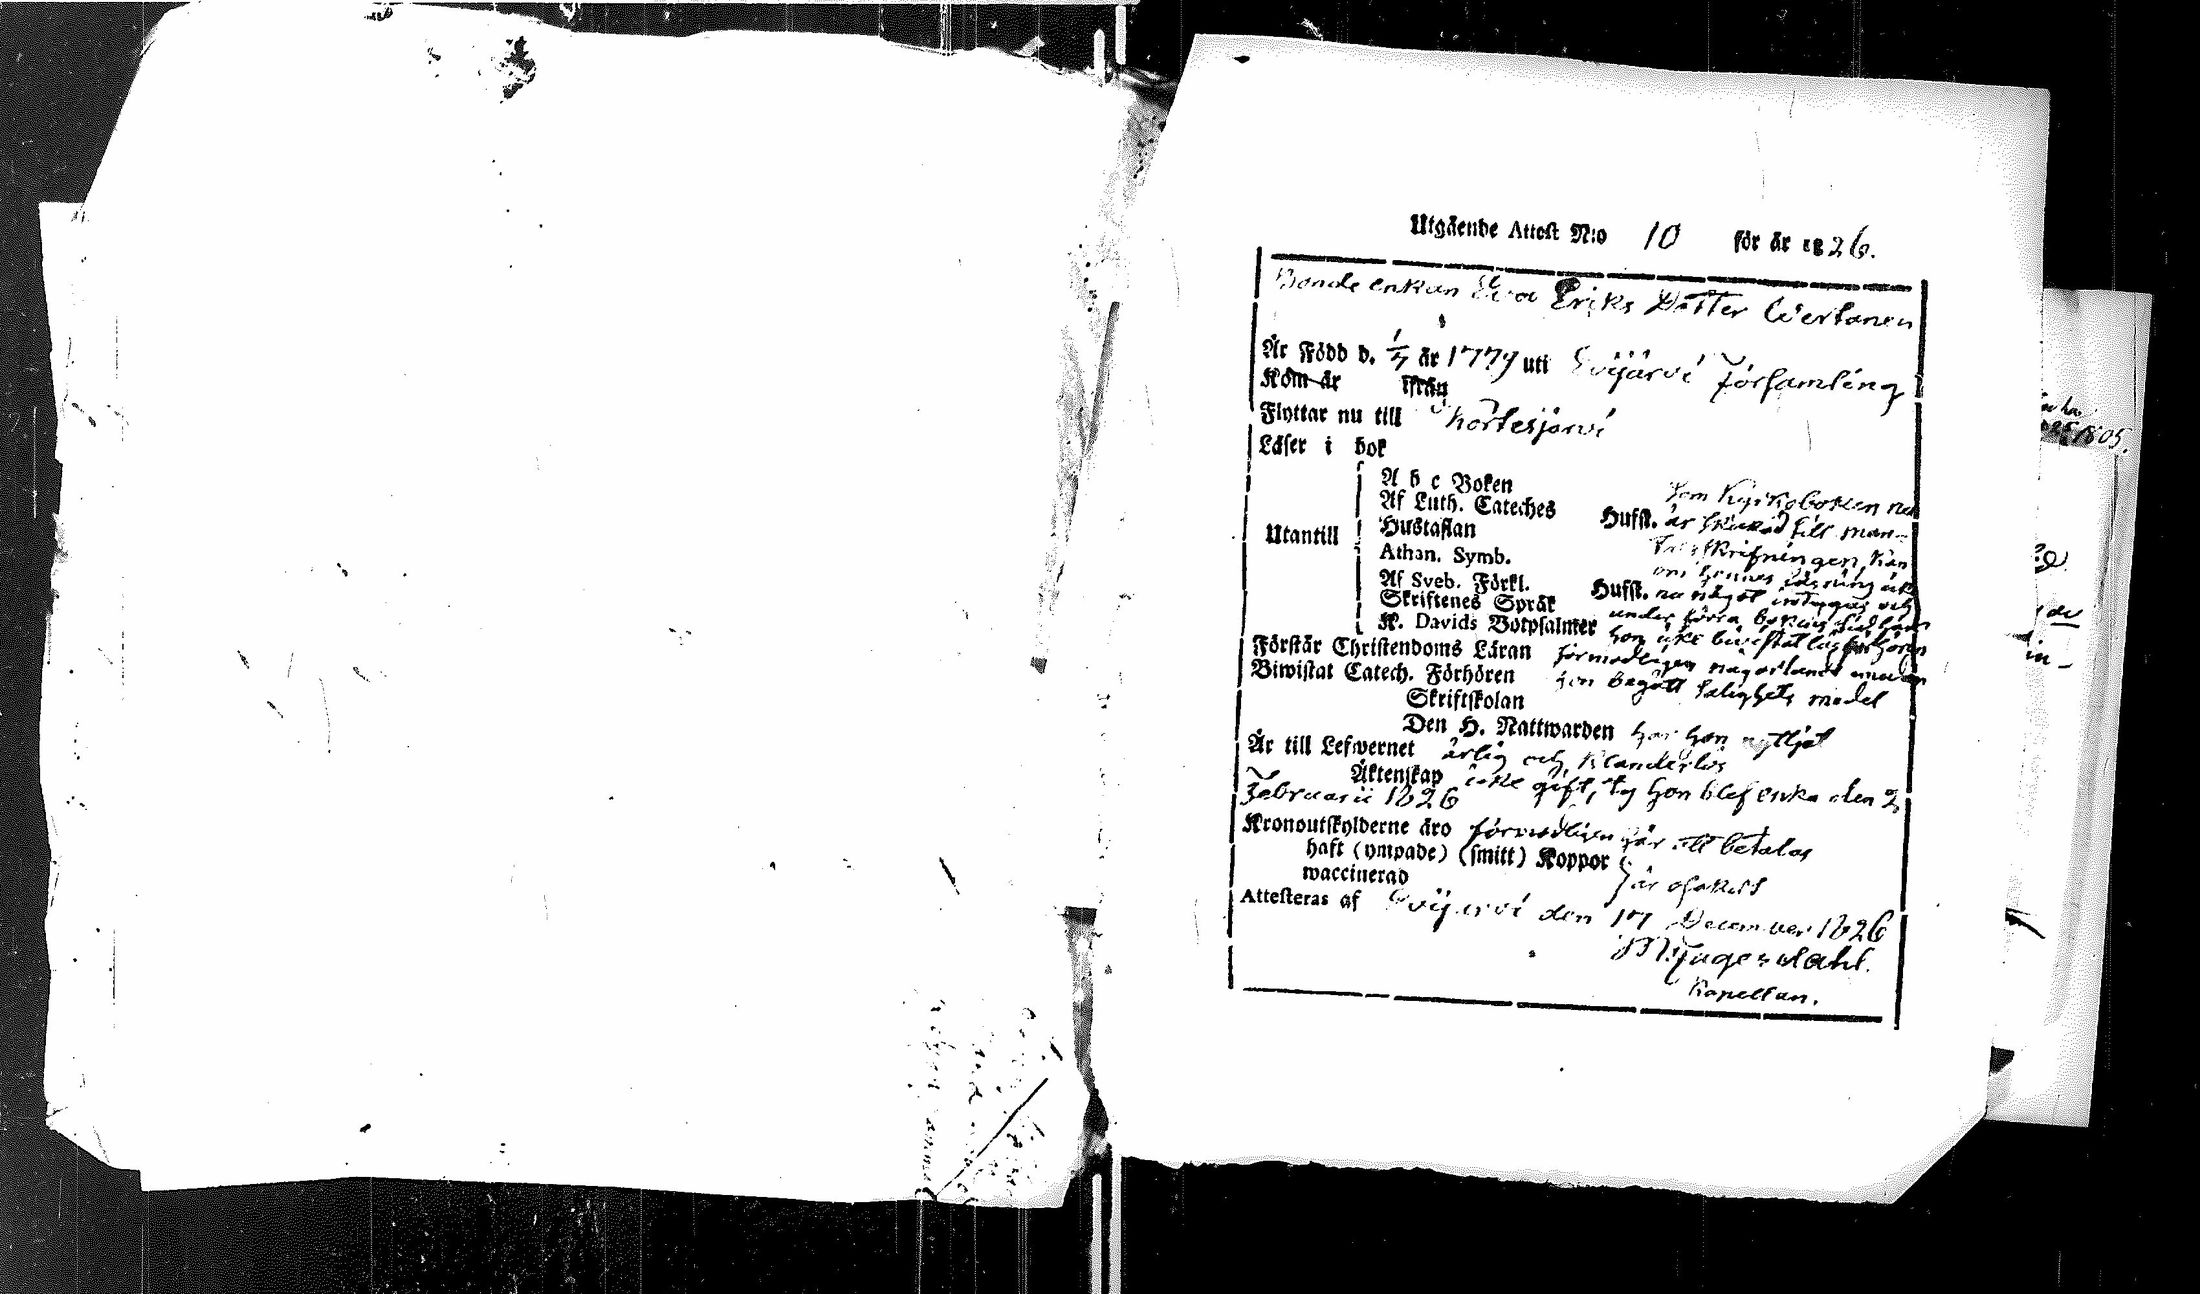 Utgående Attest N:o 10 för år 1826.
Bonde enkan Eva Eriks Dotter Wertanen
Är Född d. 1/7 år 1779 uti Evijärvi Församling
Kom år ifrån
Flyttar nu till Kortesjärvi
Läser i bok
Utantill
A b c Boken
Af Luth. Cateches Husst.
Hustaflan
Athan. Symb.
Af Sveb. Förkl. Husst.
Skriftenes Språk
K. Davids Botpsalmer
Som Kyrkoboken nu
är skickad till man-
talsskrifningen, kan
om hennes läsning ick
nu något intygas och
under förra
hon icke bivistat läsförhören
Förstår Christendoms Läran förmodligen någorlunda
Biwistat Catech. Förhören
hon begått salighets medel
Skriftskolan
Den H. Nattwarden har hon nyttjat
Är till Lefwernet ärlig och klanderlös
Äktenskap icke gift, ty hon blef enka den 2
Februarii 1826
Kronoutskylderne äro förmodligen här att betalas
haft (ympade) (smitt) Koppor
waccinerad
är osakert
Attesteras af Evijärvi den 17 December 1826
Kapellan.